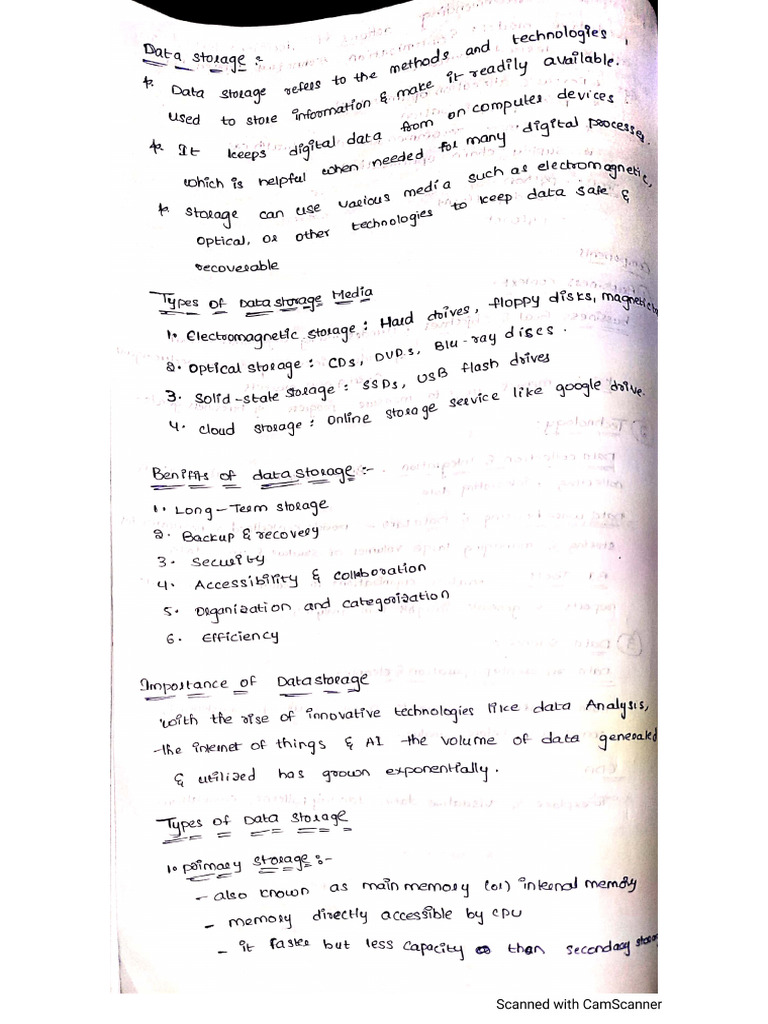 Data storage :-
* Data storage refers to the methods and technologies,
used to store information & make it readily available.
* It keeps digital data from on computer devices.
which is helpful when needed for many digital processes.
* Storage can use various media such as electromagnetic,
optical, or other technologies to keep data safe &
recoverable
Types of Data storage Media
1. Electromagnetic storage : Hard drives, floppy disks, magnetic
2. Optical storage : CDs, DVDs, Blu-ray discs.
3. Solid-state storage : SSDs, USB flash drives
4. cloud storage : Online storage service like google drive.
Benifits of data storage :-
1. Long-Term storage
2. Backup & recovery
3. Security
4. Accessibility & Collaboration
5. Organization and categorization
6. Efficiency
Importance of Data storage
with the rise of innovative technologies like data Analysis,
the internet of things & AI the volume of data generated
& utilized has grown exponentially.
Types of Data storage
1. primary storage :-
- also known as main memory (or) internal memory
- memory directly accessible by cpu
- it faster but less capacity than secondary storage
Scanned with CamScanner